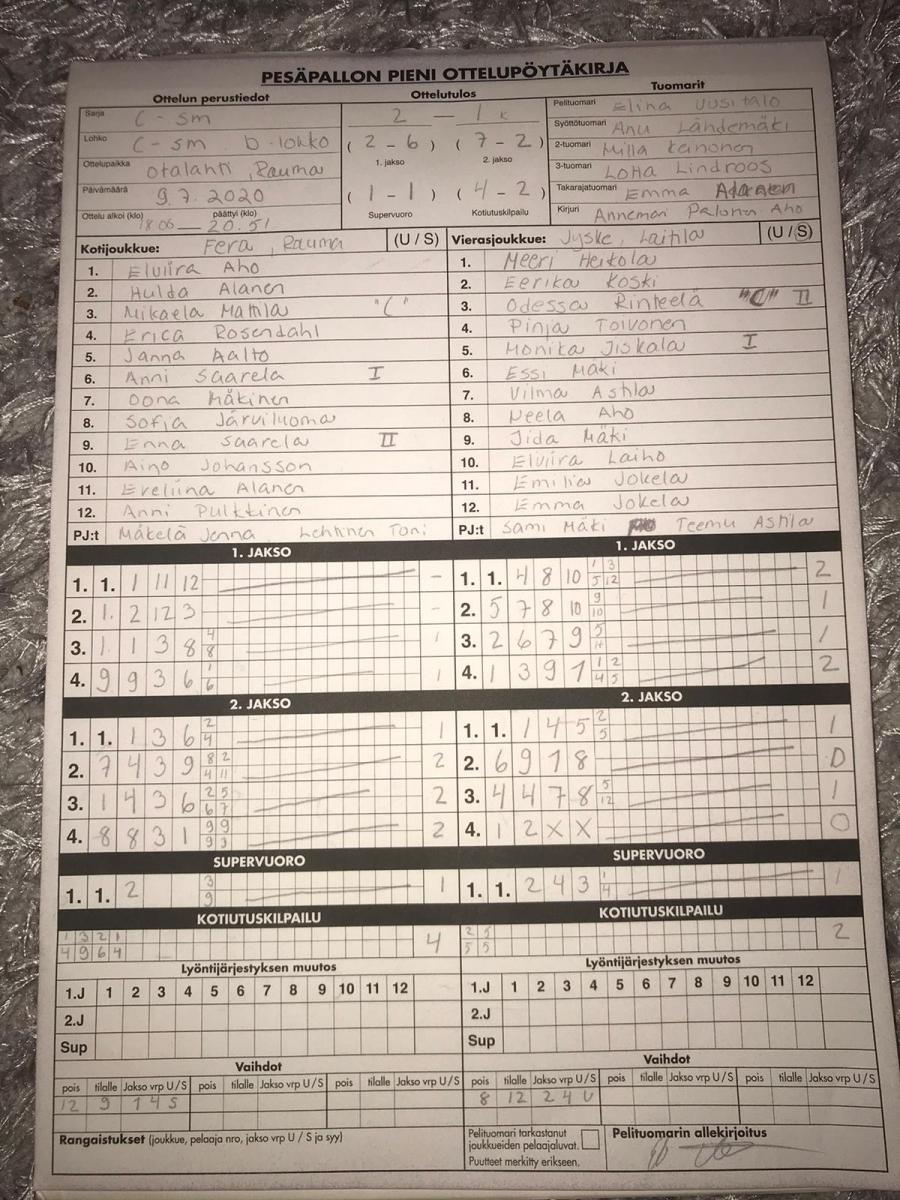 PESÄPALLON PIENI OTTELUPÖYTÄKIRJA
Ottelun perustiedot Ottelutulos Tuomarit
Sarja C - sm 2 — 1 k Pelituomari Elina Uusitalo
Lohko C - sm b - lohko (2 - 6) (7 - 2) Syöttötuomari Anu Lähdemäki
1. jakso 2. jakso 2-tuomari Milla
Ottelupaikka Otalahti, Rauma 3-tuomari Lotta Lindroos
Päivämäärä 9.7.2020 (1 - 1) (4 - 2) Takarajatuomari Emma
Ottelu alkoi (klo) 18.06 — päättyi (klo) 20.51 Supervuoro Kotiutuskilpailu Kirjuri Annemari Palonen Aho
Kotijoukkue: Fera, Rauma (U / S) Vierasjoukkue: Jyske, Laitila (U / S)
1. Elviira Aho 1. Meeri Heikola
2. Hulda Alanen 2. Eerika Koski
3. Mikaela Mattila "C" 3. Odessa Rinteelä "C" II
4. Erica Rosendahl 4. Pinja Toivonen
5. Janna Aalto 5. Monika Jiskala I
6. Anni Saarela I 6. Essi Mäki
7. Oona Mäkinen 7. Vilma Astila
8. Sofia Järviluoma 8. Neela Aho
9. Enna Saarela II 9. Jida Mäki
10. Aino Johansson 10. Elviira Laiho
11. Eveliina Alanen 11. Emilia Jokela
12. Anni Pulkkinen 12. Emma Jokela
PJ:t Mäkelä Jenna Lehtinen Toni PJ:t Sami Mäki Teemu Astila
1. JAKSO 1. JAKSO
1. 1. 1 11 12 - 1. 1. 4 8 10 1 3 5 12 2
2. 1. 2 12 3 - 2. 5 7 8 10 9 10 1
3. 1. 1 3 8 4 8 1 3. 2 6 7 9 5 1
4. 9 9 3 6 1 6 1 4. 1 3 9 1 1 2 4 5 2
2. JAKSO 2. JAKSO
1. 1. 1 3 6 2 4 1 1. 1. 1 4 5 2 5 1
2. 7 4 3 9 8 2 4 11 2 2. 6 9 1 8 0
3. 1 4 3 6 2 5 6 7 2 3. 4 4 7 8 5 12 1
4. 8 8 3 1 9 9 9 9 2 4. 1 2 X X 0
SUPERVUORO SUPERVUORO
1. 1. 2 3 9 1 1. 1. 2 4 3 1 4 1
KOTIUTUSKILPAILU KOTIUTUSKILPAILU
1 3 2 1 4 2 5 2
4 9 6 4 5 5
Lyöntijärjestyksen muutos Lyöntijärjestyksen muutos
1.J 1 2 3 4 5 6 7 8 9 10 11 12 1.J 1 2 3 4 5 6 7 8 9 10 11 12
2.J 2.J
Sup Sup
Vaihdot Vaihdot
pois tilalle Jakso vrp U/S pois tilalle Jakso vrp U/S pois tilalle Jakso vrp U/S pois tilalle Jakso vrp U/S pois tilalle Jakso vrp U/S pois tilalle Jakso vrp U/S
12 9 1 4 S 8 12 2 4 U
Rangaistukset (joukkue, pelaaja nro, jakso vrp U / S ja syy) Pelituomari tarkastanut Pelituomarin allekirjoitus
joukkueiden pelaajaluvat.
Puutteet merkitty erikseen.